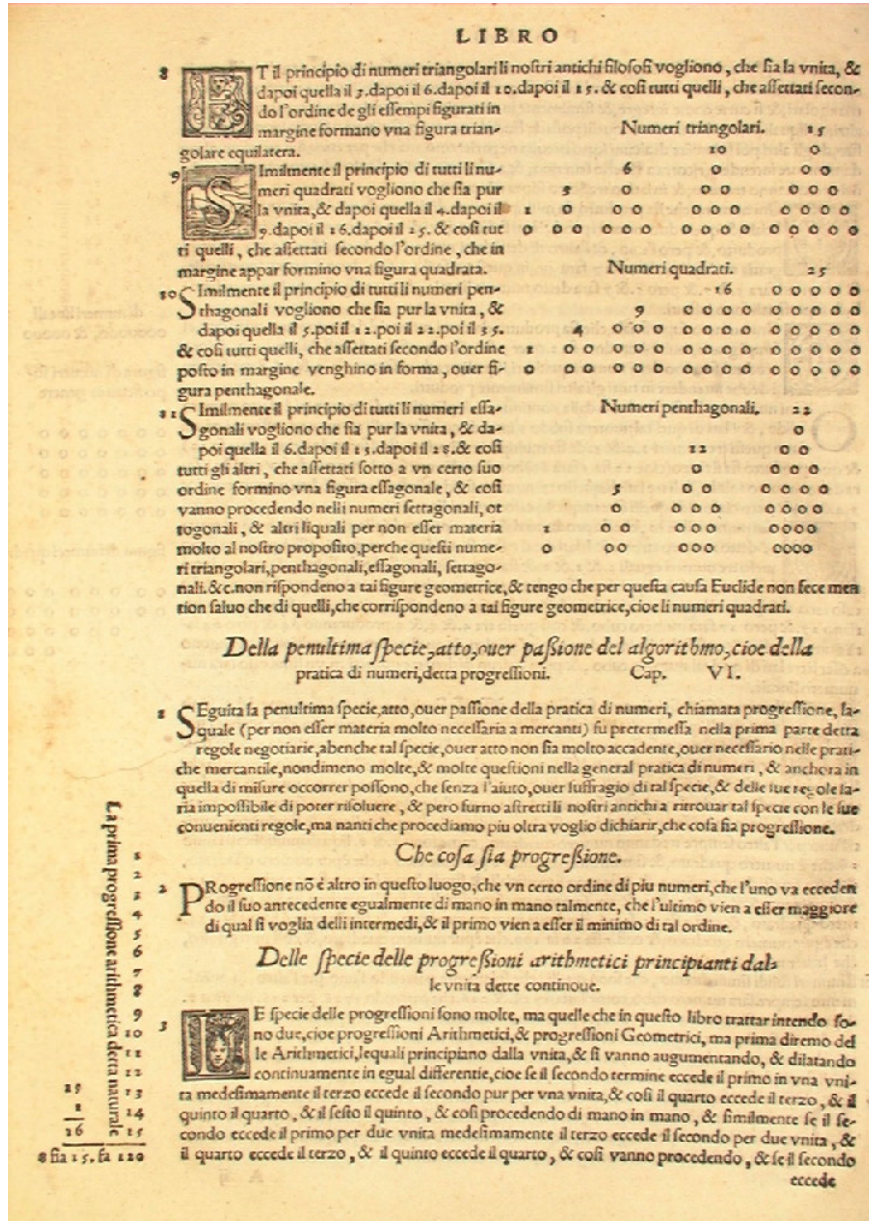 LIBRO
8 ET il principio di numeri triangolari li nostri antichi filosofi vogliono, che sia la vnita, &
dapoi quella il 3.dapoi il 6.dapoi il 10.dapoi il 15. & cosi tutti quelli, che assettati secon-
do l'ordine de gli essempi figurati in
margine formano vna figura trian-
golare equilatera.
Numeri triangolari. 15
10 o
6 o o o
3 o o o o o o
1 o o o o o o o o o o
o o o o o o o o o o o o o o o
9 SImilmente il principio di tutti li nu-
meri quadrati vogliono che sia pur
la vnita, & dapoi quella il 4.dapoi il
9.dapoi il 16.dapoi il 25. & cosi tut
ti quelli, che assettati secondo l'ordine, che in
margine appar formino vna figura quadrata.
Numeri quadrati. 25
16 o o o o o
9 o o o o o o o o o
4 o o o o o o o o o o o o
1 o o o o o o o o o o o o o o
o o o o o o o o o o o o o o o
10 SImilmente il principio di tutti li numeri pen-
thagonali vogliono che sia pur la vnita, &
dapoi quella il 5.poi il 12.poi il 22.poi il 35.
& cosi tutti quelli, che assettati secondo l'ordine
posto in margine venghino in forma, ouer fi-
gura penthagonale.
Numeri penthagonali. 22
o
12 o o
o o o o
5 o o o o o o
o o o o o o o o
1 o o o o o o o o o
o o o o o o o o o o
11 SImilmente il principio di tutti li numeri essa-
gonali vogliono che sia pur la vnita, & da-
poi quella il 6.dapoi il 15.dapoi il 28.& cosi
tutti gli altri, che assettati sotto a vn certo suo
ordine formino vna figura essagonale, & cosi
vanno procedendo nelli numeri settagonali, ot
togonali, & altri liquali per non esser materia
molto al nostro proposito, perche questi nume-
ri triangolari, penthagonali, essagonali, settago-
nali.&c.non rispondeno a tai figure geometrice, & tengo che per questa causa Euclide non fece men
tion saluo che di quelli, che corrispondeno a tai figure geometrice, cioe li numeri quadrati.
Della penultima specie, atto, ouer passione del algorithmo, cioe della
pratica di numeri, detta progressioni. Cap. VI.
1 SEguita la penultima specie, atto, ouer passione della pratica di numeri, chiamata progressione, la-
quale (per non esser materia molto necessaria a mercanti) fu pretermessa nella prima parte detta
regole negotiarie, abenche tal specie, ouer atto non sia molto accadente, ouer necessario nelle prati-
che mercantile, nondimeno molte, & molte questioni nella general pratica di numeri, & anchora in
quella di misure occorrer possono, che senza l'aiuto, ouer suffragio di tal specie, & delle sue regole sa-
ria impossibile di poter risoluere, & pero furno astretti li nostri antichi a ritrouar tal specie con le sue
conuenienti regole, ma nanti che procediamo piu oltra voglio dichiarir, che cosa sia progressione.
Che cosa sia progressione.
2 PRogressione nō é altro in questo luogo, che vn certo ordine di piu numeri, che l'uno va ecceden
do il suo antecedente egualmente di mano in mano talmente, che l'ultimo vien a esser maggiore
di qual si voglia delli intermedi, & il primo vien a esser il minimo di tal ordine.
Delle specie delle progressioni arithmetici principianti dal-
le vnita dette continoue.
3 LE specie delle progressioni sono molte, ma quelle che in questo libro trattar intendo so-
no due, cioe progressioni Arithmetici, & progressioni Geometrici, ma prima diremo del
le Arithmetici, lequali principiano dalla vnita, & si vanno augumentando, & dilatando
continuamente in egual differentie, cioe se il secondo termine eccede il primo in vna vni-
ta medesimamente il terzo eccede il secondo pur per vna vnita, & cosi il quarto eccede il terzo, & il
quinto il quarto, & il sesto il quinto, & cosi procedendo di mano in mano, & similmente se il se-
condo eccede il primo per due vnita medesimamente il terzo eccede il secondo per due vnita, &
il quarto eccede il terzo, & il quinto eccede il quarto, & cosi vanno procedendo, & se il secondo
eccede
La prima progressione arithmetica detta naturale
1
2
3
4
5
6
7
8
9
10
11
12
13
14
15
15
1
16
8 fia 15. fa 120